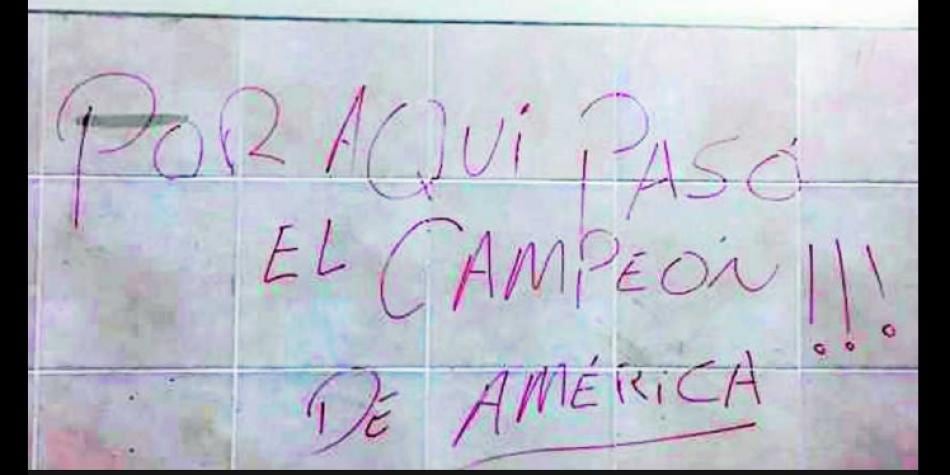 POR AQUÍ PASÓ
EL CAMPEÓN!!!
DE AMÉRICA